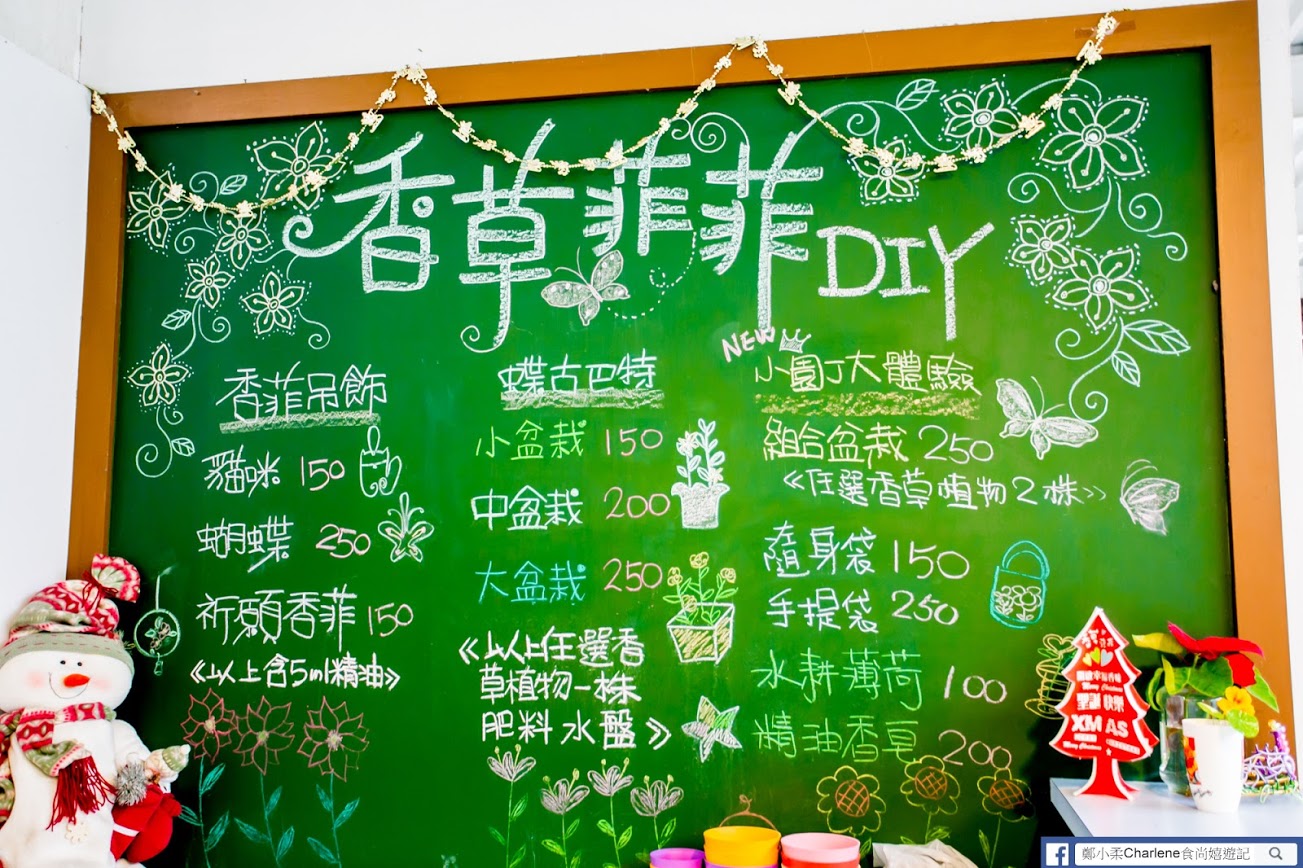 香草菲菲DIY
香菲吊飾
貓咪 150
蝴蝶 250
祈願香菲 150
《以上含5ml精油》
蝶古巴特
小盆栽 150
中盆栽 200
大盆栽 250
《以上任選香
草植物一株
肥料水盤》
NEW
小園丁大體驗
組合盆栽 250
《任選香草植物2株》
隨身袋 150
手提袋 250
水耕薄荷 100
精油香皂 200
聖誕快樂
XMAS
Merry Christmas
鄭小柔Charlene食尚嬉遊記